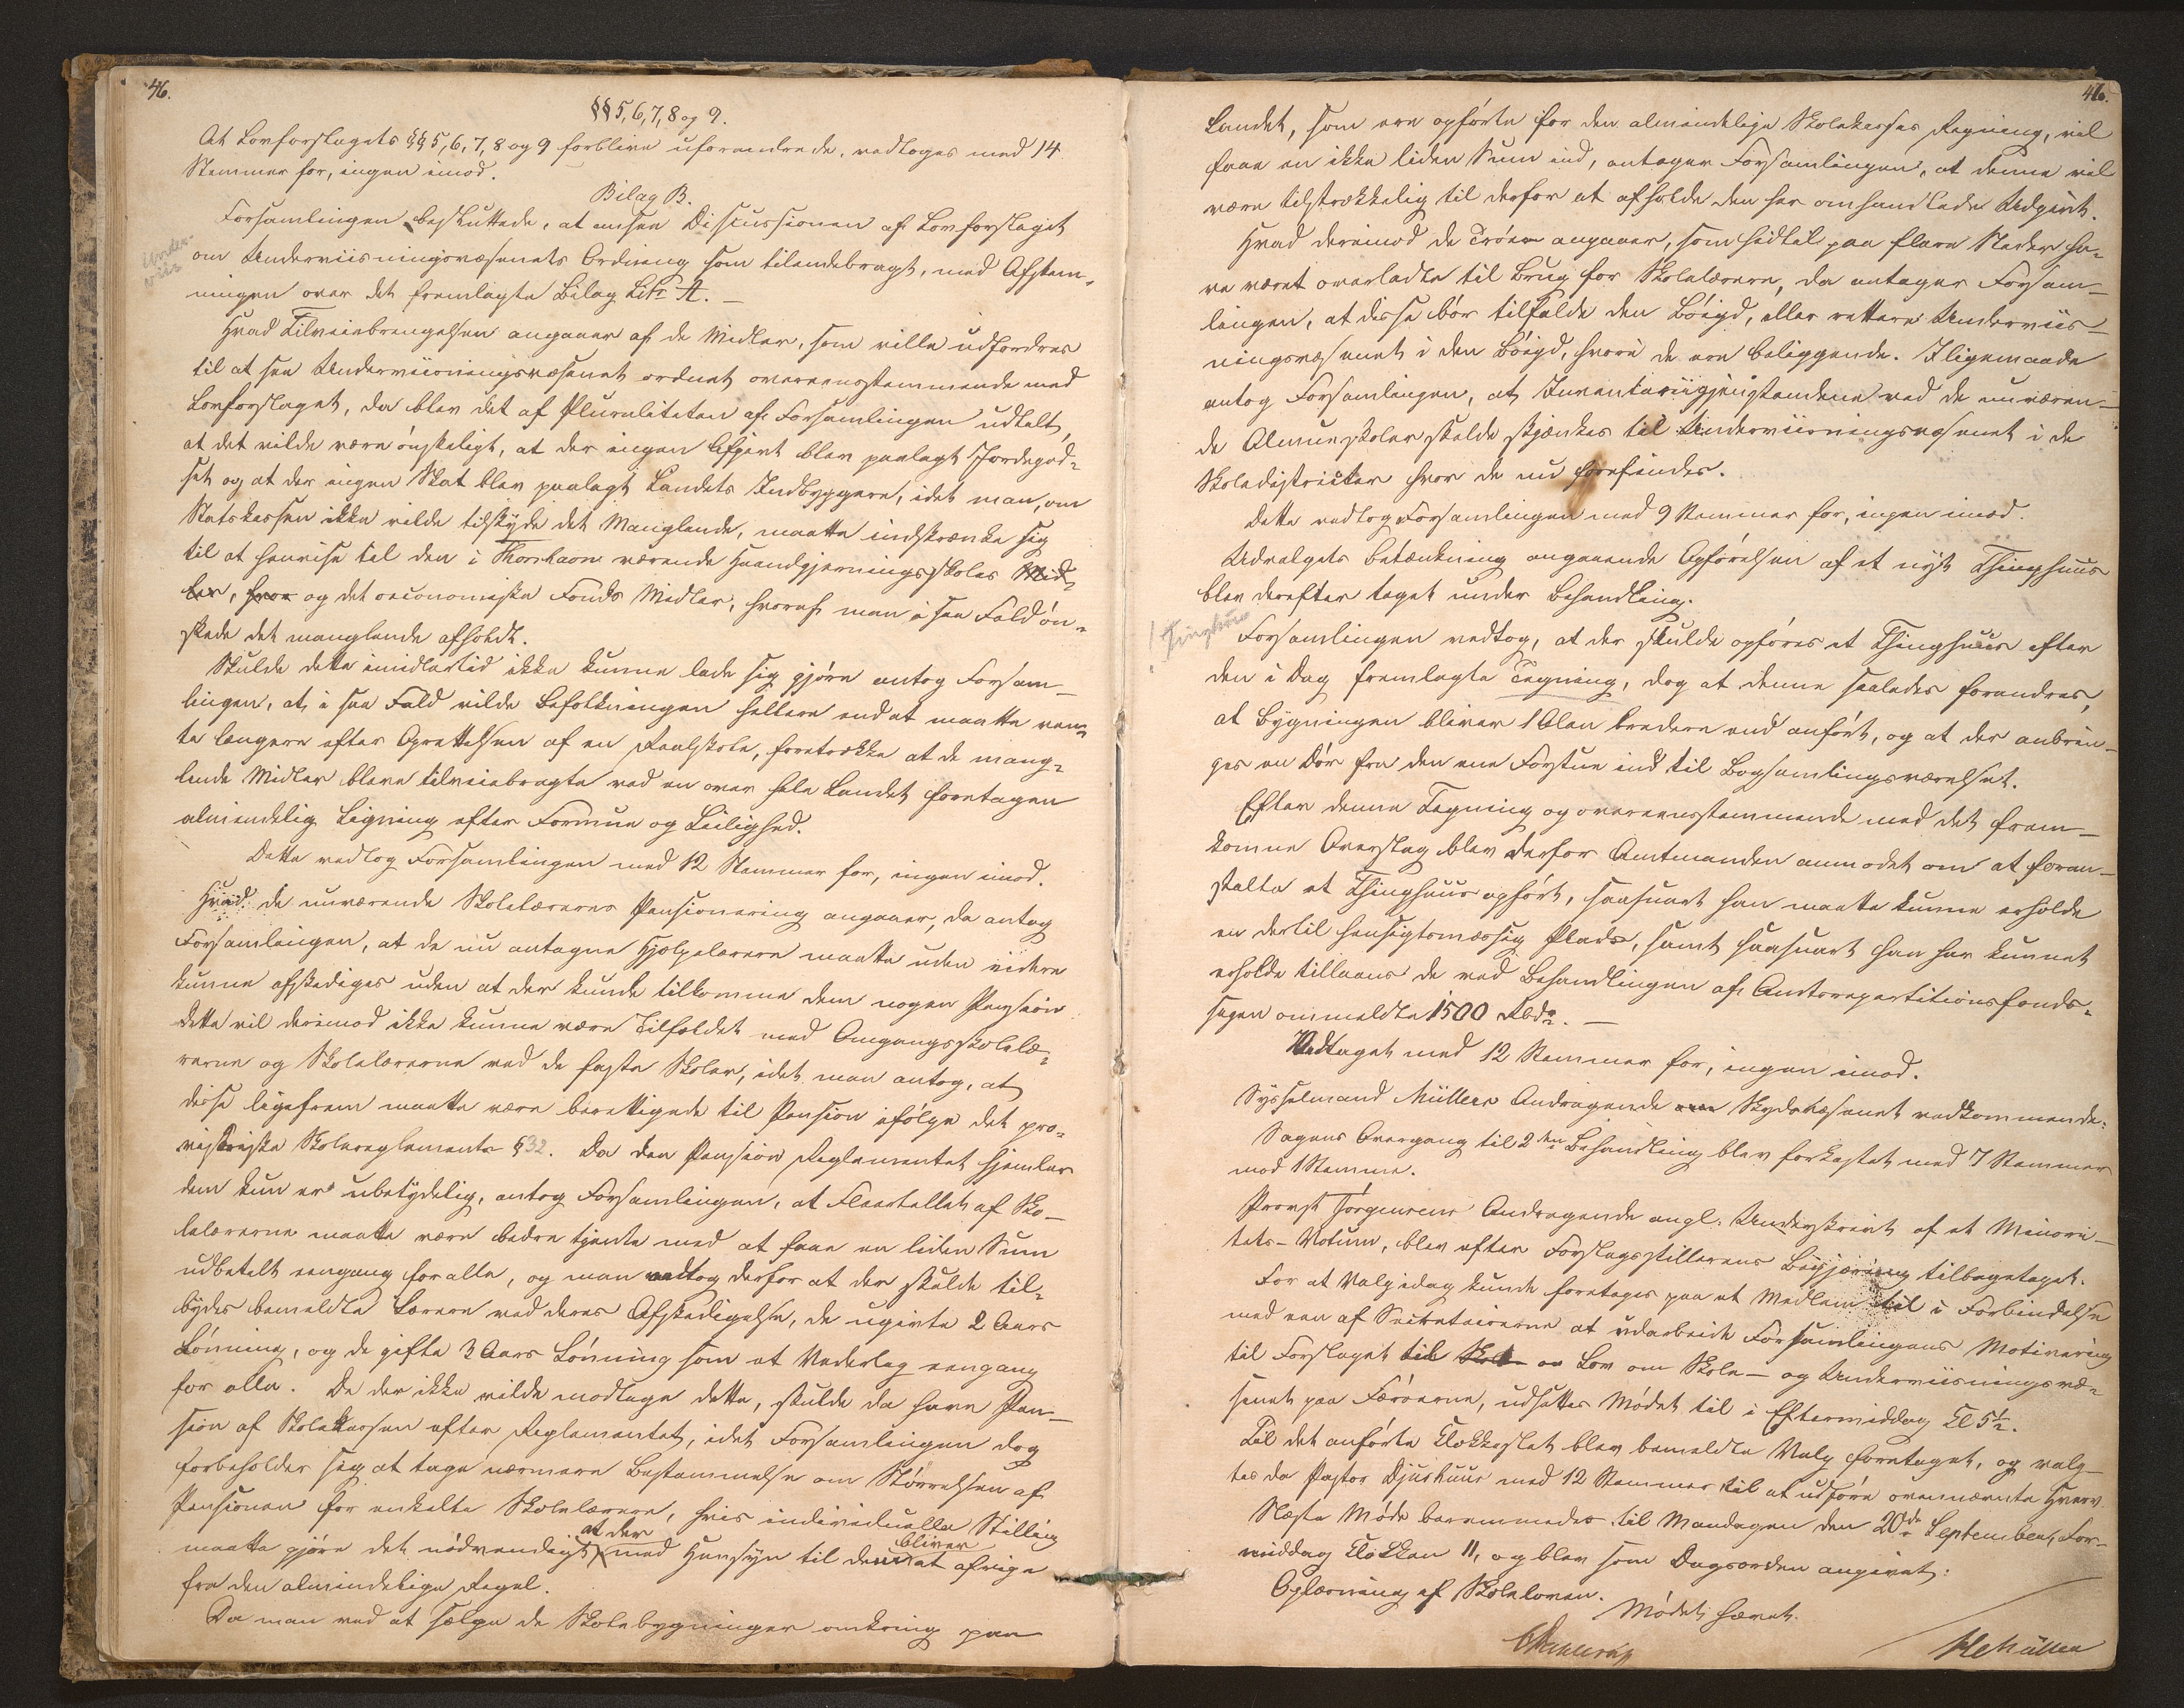 46.
§§ 5, 6, 7, 8 og 9.
At Lovforslagets §§ 5, 6, 7, 8 og 9 forblive uforandrede, vedtoges med 14
Stemmer for, ingen imod.
Bilag B.
Forsamlingen besluttede, at ansee Discussionen af Lovforslaget
Under-
viis
om Underviisningsvæsenets Ordning som tilendebragt, med Afstem-
ningen over det fremlagte Bilag Litr A. —
Hvad Tilveiebringelsen angaaer af de Midler, som ville udfordres
til at see Underviisningsvæsenet ordnet overeensstemmende med
Lovforslaget, da blev det af Pluraliteten af Forsamlingen udtalt,
at det vilde være ønskeligt, at der ingen Afgivt blev paalagt Jordegod-
set og at der ingen Skat blev paalagt Landets Indbyggere, idet man, om
Statskassen ikke vilde tilskyde det Manglende, maatte indskrænke sig
til at henvise til den i Thorshavn værende Haandgjerningsskoles Mid-
ler, hvor og det oeconomiske Fonds Midler, hvoraf man i saa Fald øn-
skede det manglende afholdt.
Skulde dette imidlertid ikke kunne lade sig gjøre antog Forsam-
lingen, at, i saa Fald vilde Befolkningen hellere end at maatte ven-
te længere efter Oprettelsen af en Realskole, foretrække at de mang-
lende Midler bleve tilveiebragte ved en over hele Landet foretagen
almindelig Ligning efter Formue og Leilighed.
Dette vedtog Forsamlingen med 12 Stemmer for, ingen imod.
Hvad de nuværende Skolelæreres Pensionering angaaer, da antog
Forsamlingen, at de nu antagne Hjælpelærere maatte uden videre
kunne afskediges uden at der kunde tilkomme dem nogen Pension
dette vil derimod ikke kunne være Tilfældet med Omgangsskolelæ-
rerne og Skolelærerne ved de faste Skoler, idet man antog, at
disse ligefrem maatte være berettigede til Pension ifølge det pro-
visoriske Skolereglements § 32. Da den Pension Reglementet hjemler
dem kun er ubetydelig, antog Forsamlingen, at Fleertallet af Sko-
lelærerne maatte være bedre tjente med at faae en liden Sum
udbetalt eengang for alle, og man vedtog derfor at der skulde til-
bydes bemeldte Lærere ved deres Afskedigelse, de ugivte 2 Aars
Lønning, og de gifte 3 Aars Lønning som et Vederlag eengang
for alle. De der ikke vilde modtage dette, skulde da have Pen-
sion af Skolekassen efter Reglementet, idet Forsamlingen dog
forbeholder sig at tage nærmere Bestemmelse om Størrelsen af
Pensionen for enkelte Skolelærere, hvis individuelle Stilling
maatte gjøre det nødvendigt at der med Hensyn til dem bliver at afvige
fra den almindelige Regel.
Da man ved at sælge de Skolebygninger omkring paa
46.
Landet, som ere opførte for den almindelige Skolekasses Regning, vil
faae en ikke liden Sum ind, antager Forsamlingen, at denne vil
være tilstrækkelig til derfor at afholde den her omhandlede Udgivt.
Hvad derimod de Trøer angaaer, som hidtil paa flere Steder ha-
ve været overladte til Brug for Skolelærere, da antager Forsam-
lingen, at disse bør tilfalde den Bøigd, eller rettere Underviis-
ningsvæsenet i den Bøigd, hvori de ere beliggende. Iligemaade
antog Forsamlingen, at Inventariigjenstandene ved de nuværen-
de Almueskoler skulde skjænkes til Underviisningsvæsenet i de
Skoledistricter hvor de nu forefindes.
Dette vedtog Forsamlingen med 9 Stemmer for, ingen imod.
Udvalgets Betænkning angaaende Opførelsen af et nyt Thinghuus
blev derefter taget under Behandling.
Thinghuus
Forsamlingen vedtog, at der skulde opføres et Thinghuus efter
den i Dag fremlagte Tegning, dog at denne saaledes forandres,
at Bygningen bliver 1 Alen bredere end anført, og at der anbrin-
ges en Dør fra den ene Forstue ind til Bogsamlingsværelset.
Efter denne Tegning og overeensstemmende med det frem-
komne Overslag blev derfor Amtmanden anmodet om at foran-
stalte et Thinghuus opført, saasnart han maatte kunne erholde
en dertil hensigtsmæssig Plads, samt saasnart han har kunnet
erholde tillaans de ved Behandlingen af Amtsrepartitionsfonds-
sagen ommeldte 1500 Rbdr. —
Vedtaget med 12 Stemmer for, ingen imod.
Sysselmand Müllers Andragende om Skydsvæsenet vedkommende:
Sagens Overgang til 2den Behandling blev forkastet med 7 Stemmer
mod 1 Stemme.
Provst Jørgensens Andragende angl. Underskrivt af et Minori-
tets-Votum, blev efter Forslagsstillerens Begjæring tilbagetaget.
For at Valg idag kunde foretages paa et Medlem til i Forbindelse
med een af Secretairerne at udarbeide Forsamlingens Motivering
til Forslaget til Skole- og Lov om Skole- og Underviisningsvæ-
senet paa Færøerne, udsattes Mødet til i Eftermiddag Kl 5½.
Til det anførte Klokkeslet blev bemeldte Valg foretaget, og valg-
tes da Pastor Djurhuus med 12 Stemmer til at udføre ovennævnte Hverv.
Næste Møde berammedes til Mandagen den 20de September, For-
middag Klokken 11, og blev som Dagsorden angivet:
Oplæsning af Skoleloven.
Mødet hævet.
HCMüller